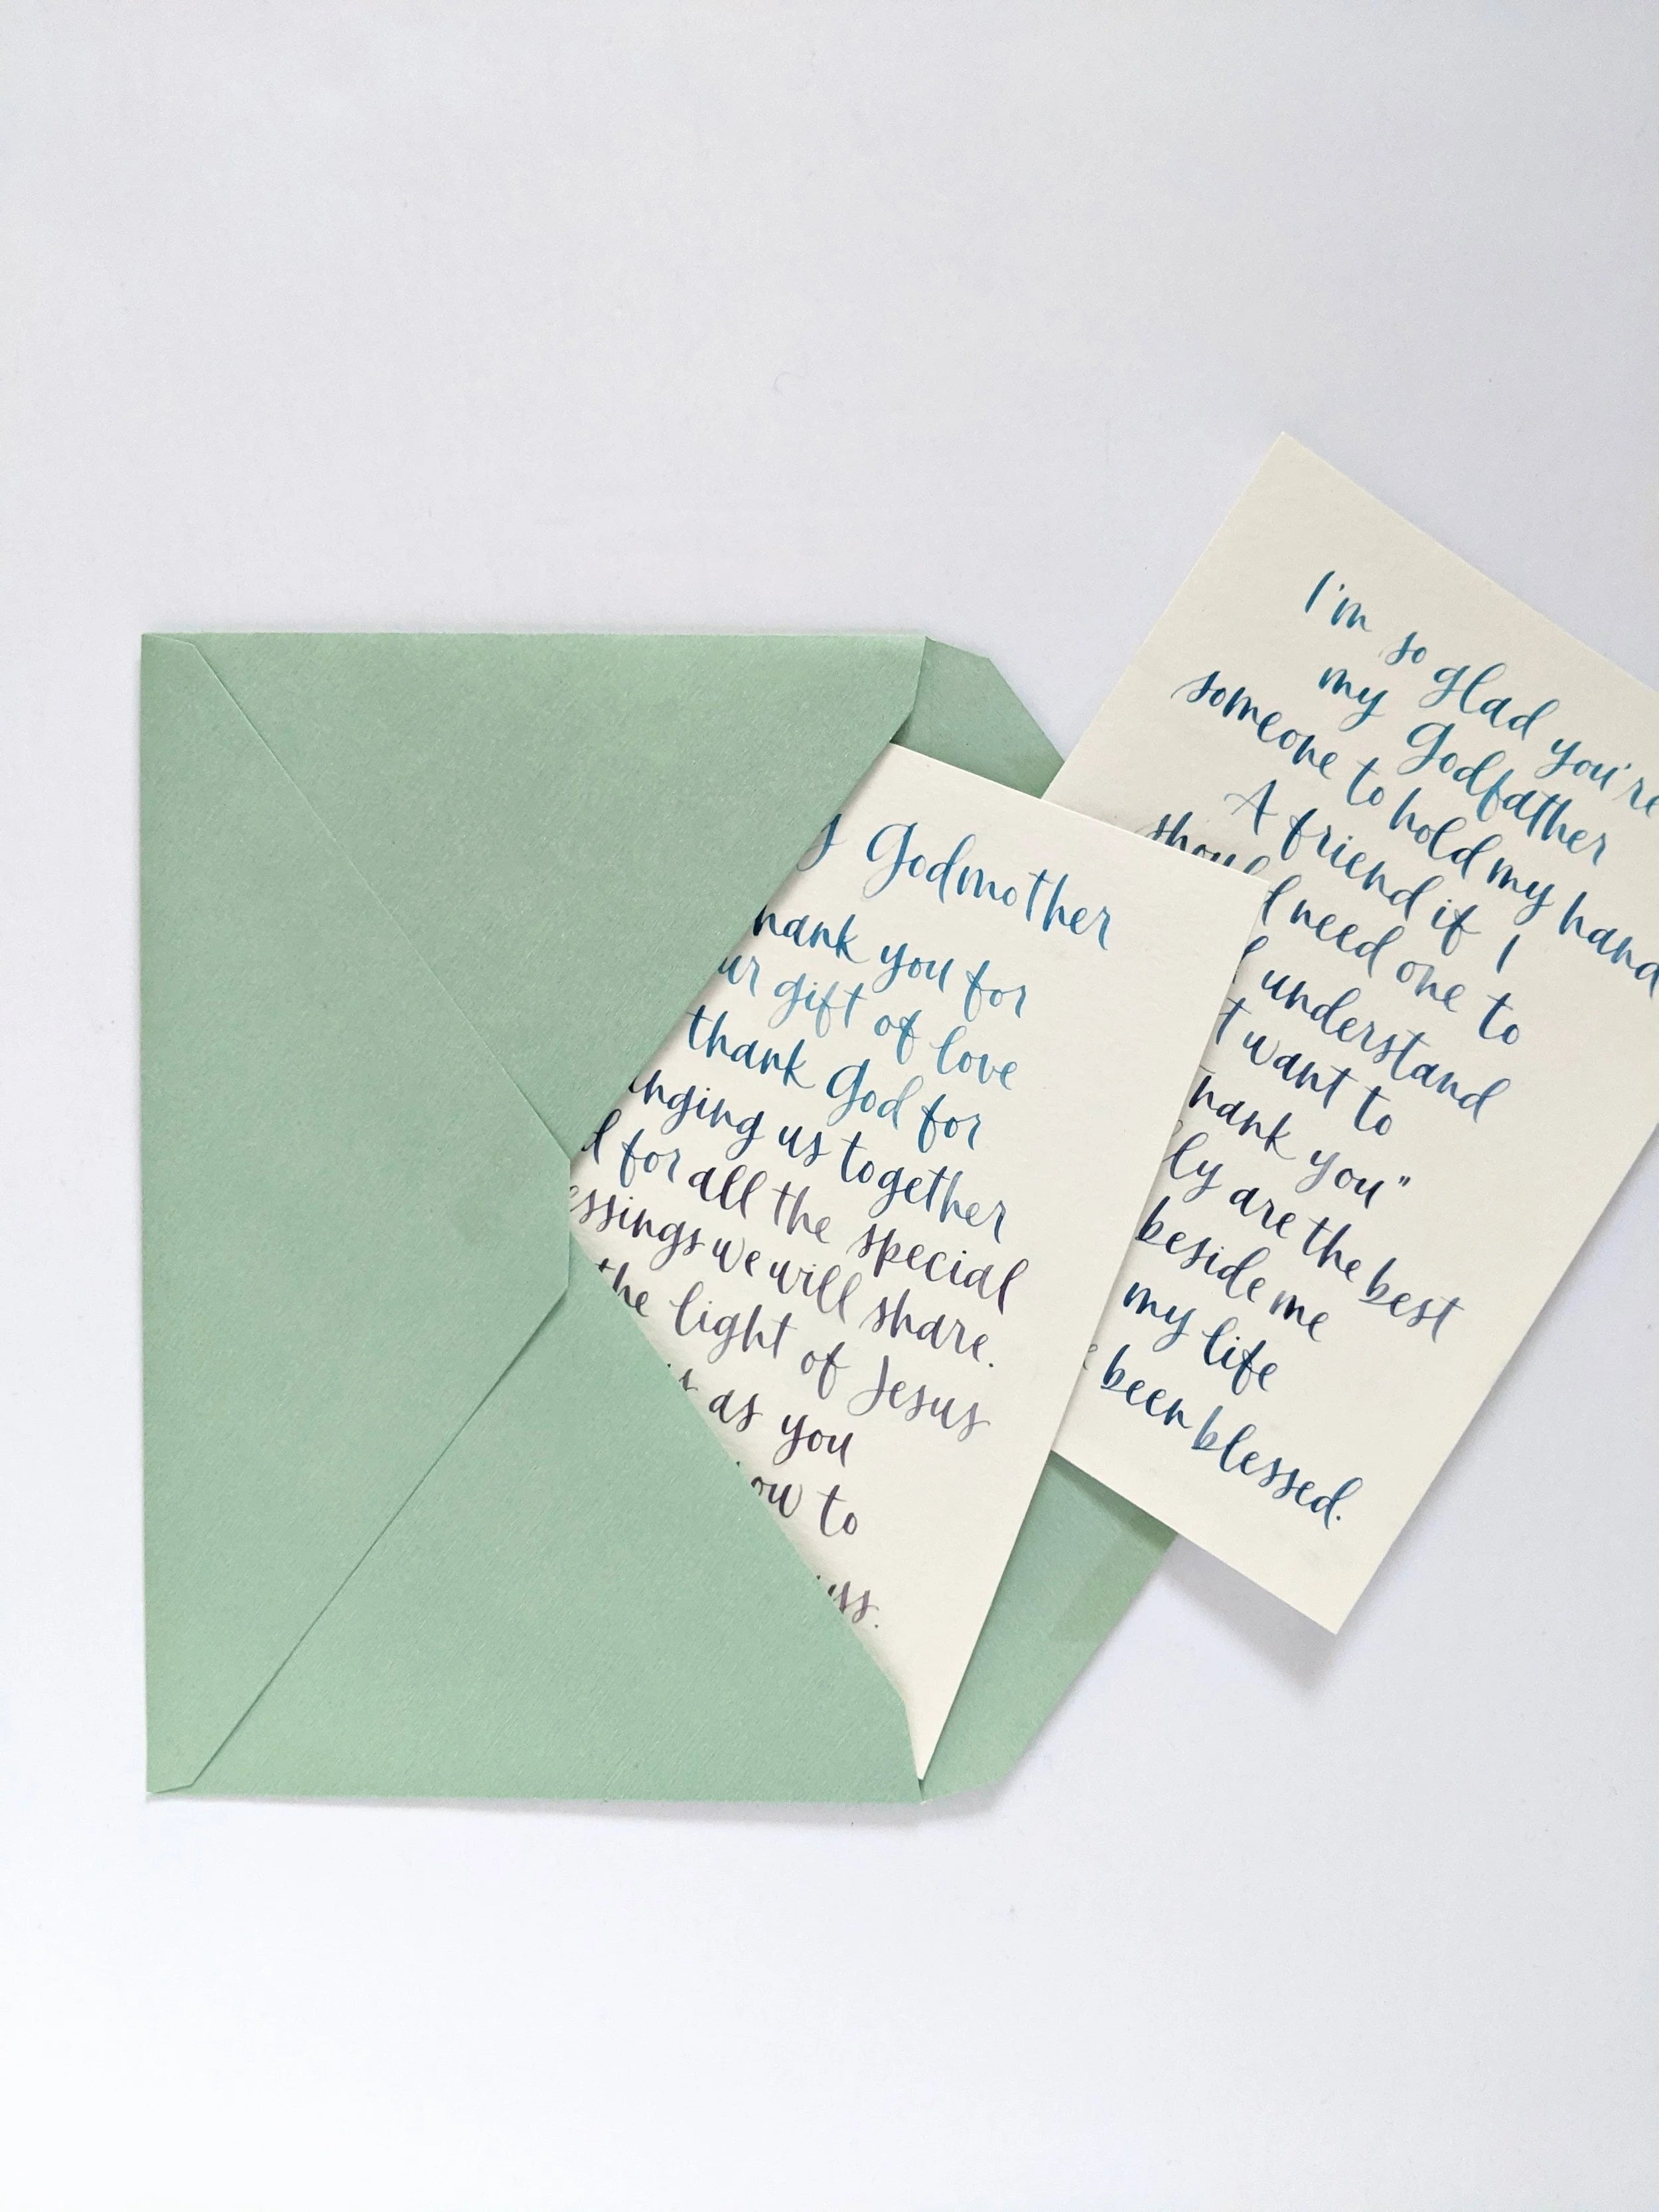 Godmother
you for
gift of love
thank God for
us together
for all the special
we will share.
the light of Jesus
as you
to
I'm so glad you're
my Godfather
someone to hold my hand
A friend if I
need one to
understand
want to
you"
are the best
beside me
my life
been blessed.